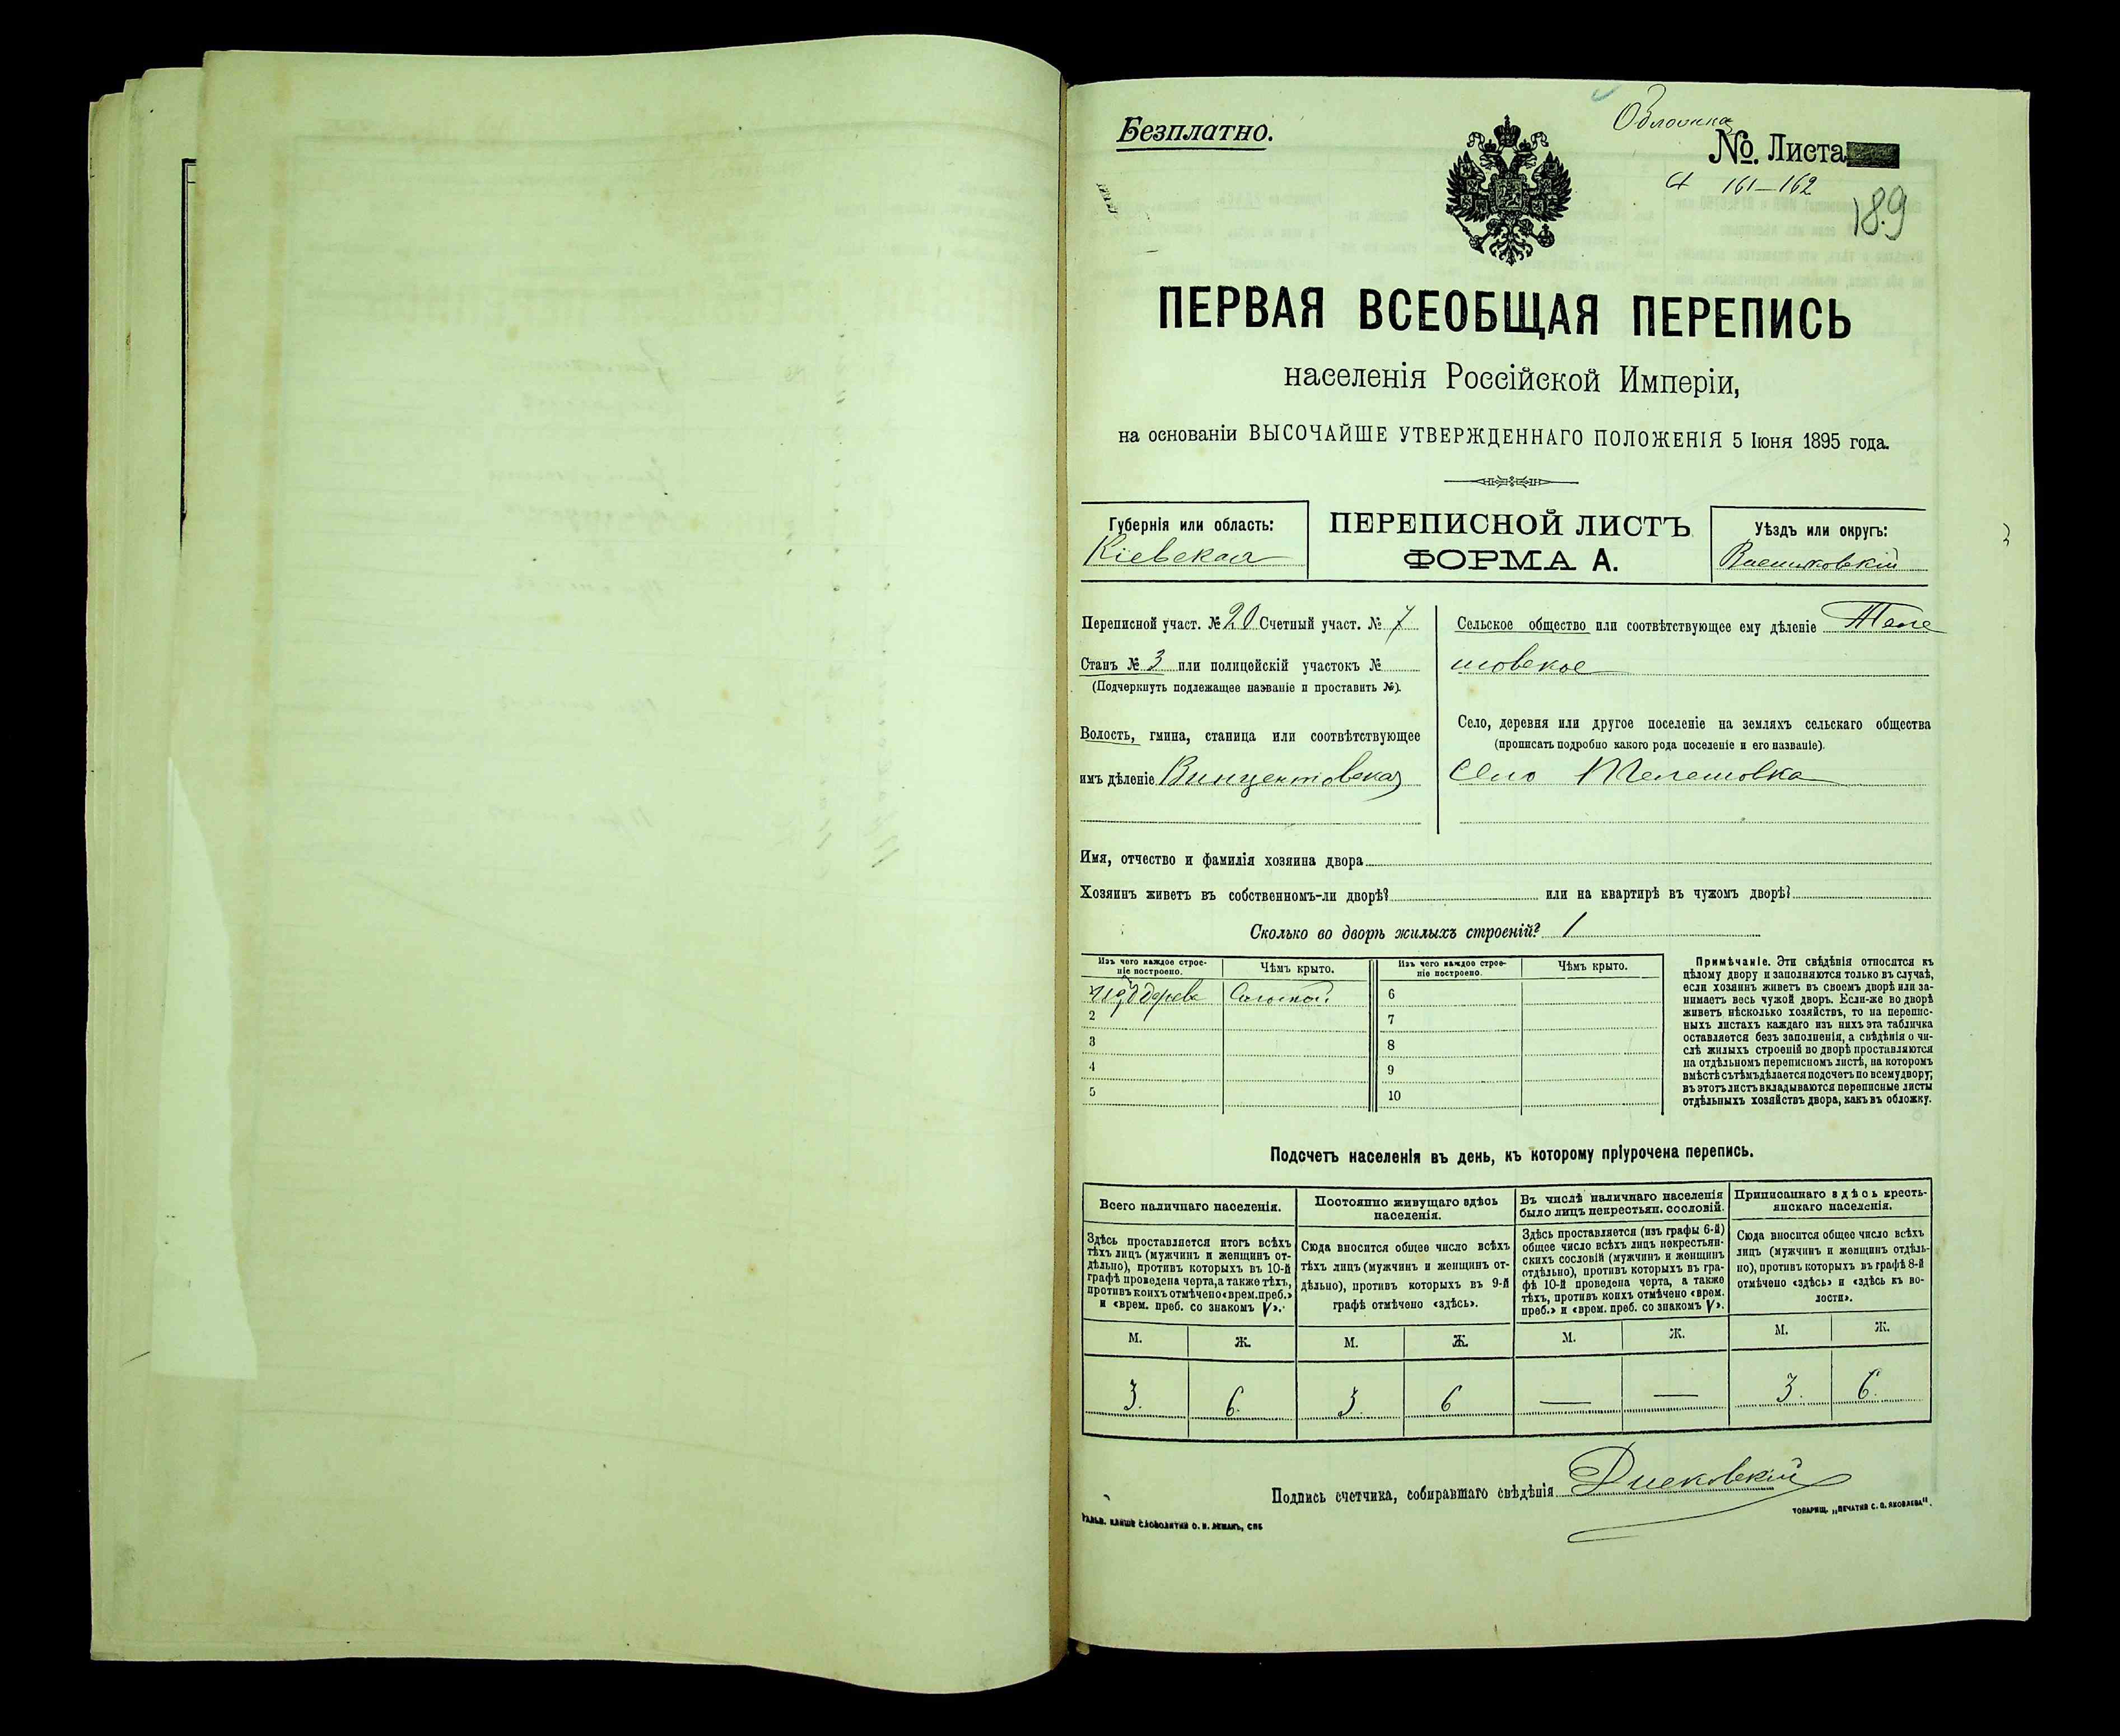 Безплатно.
Обложка
№. Листа
161—162
189
ПЕРВАЯ ВСЕОБЩАЯ ПЕРЕПИСЬ
населенія Россійской Имперіи,
на основаніи ВЫСОЧАЙШЕ УТВЕРЖДЕННАГО ПОЛОЖЕНІЯ 5 Іюня 1895 года.
Губернія или область:
Кіевская
ПЕРЕПИСНОЙ ЛИСТЪ
ФОРМА А.
Уѣздъ или округъ:
Васильковскій
Переписной участ. № 20 Счетный участ. № 7
Станъ № 3 или полицейскій участокъ №
(Подчеркнуть подлежащее названіе и проставить №).
Волость, гмина, станица или соотвѣтствующее
имъ дѣленіе Винцентовская
Сельское общество или соотвѣтствующее ему дѣленіе Теле
шовское
Село, деревня или другое поселеніе на земляхъ сельскаго общества
(прописать подробно какого рода поселеніе и его названіе).
Село Телешовка
Имя, отчество и фамилія хозяина двора
Хозяинъ живетъ въ собственномъ-ли дворѣ? или на квартирѣ въ чужомъ дворѣ?
Сколько во дворѣ жилыхъ строеній? 1
Изъ чего каждое строе-
ніе построено.
Чѣмъ крыто.
Изъ чего каждое строе-
ніе построено.
Чѣмъ крыто.
изъ дерева Соломой. 6
2 7
3 8
4 9
5 10
Примѣчаніе. Эти свѣдѣнія относятся къ
цѣлому двору и заполняются только въ случаѣ,
если хозяинъ живетъ въ своемъ дворѣ или за-
нимаетъ весь чужой дворъ. Если-же во дворѣ
живетъ нѣсколько хозяйствъ, то на перепис-
ныхъ листахъ каждаго изъ нихъ эта табличка
оставляется безъ заполненія, а свѣдѣнія о чи-
слѣ жилыхъ строеній во дворѣ проставляются
на отдѣльномъ переписномъ листѣ, на которомъ
вмѣстѣ съ тѣмъ дѣлается подсчетъ по всему двору;
въ этотъ листъ вкладываются переписные листы
отдѣльныхъ хозяйствъ двора, какъ въ обложку.
Подсчетъ населенія въ день, къ которому пріурочена перепись.
Всего наличнаго населенія.
Здѣсь проставляется итогъ всѣхъ
тѣхъ лицъ (мужчинъ и женщинъ от-
дѣльно), противъ которыхъ въ 10-й
графѣ проведена черта, а также тѣхъ,
противъ коихъ отмѣчено «врем. преб.»
и «врем. преб. со знакомъ V».
Постоянно живущаго здѣсь
населенія.
Сюда вносится общее число всѣхъ
тѣхъ лицъ (мужчинъ и женщинъ от-
дѣльно), противъ которыхъ въ 9-й
графѣ отмѣчено «здѣсь».
Въ числѣ наличнаго населенія
было лицъ некрестьян. сословій.
Здѣсь проставляется (изъ графы 6-й)
общее число всѣхъ лицъ некрестьян-
скихъ сословій (мужчинъ и женщинъ
отдѣльно), противъ которыхъ въ гра-
фѣ 10-й проведена черта, а также
тѣхъ, противъ коихъ отмѣчено «врем.
преб.» и «врем. преб. со знакомъ V».
Приписаннаго здѣсь кресть-
янскаго населенія.
Сюда вносится общее число всѣхъ
лицъ (мужчинъ и женщинъ отдѣль-
но), противъ которыхъ въ графѣ 8-й
отмѣчено «здѣсь» и «здѣсь къ во-
лости».
М. Ж. М. Ж. М. Ж. М. Ж.
3. 6. 3. 6 — — 3. 6.
Подпись счетчика, собиравшаго свѣдѣнія
ГАЛЬВ. КЛИШЕ СЛОВОЛИТНИ О. И. ЛЕМАНЪ, СПБ
ТОВАРИЩ. „ПЕЧАТНЯ С. П. ЯКОВЛЕВА".